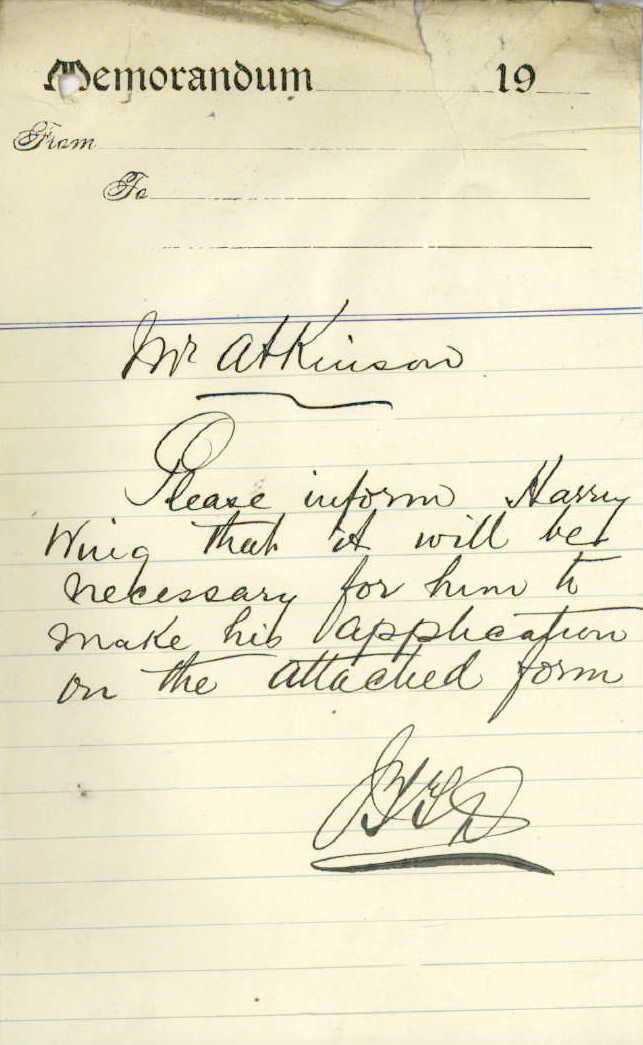 Memorandum 19
From
To
Mr Atkinson
Please inform Harry
Wing that it will be
necessary for him to
make his application
on the attached form